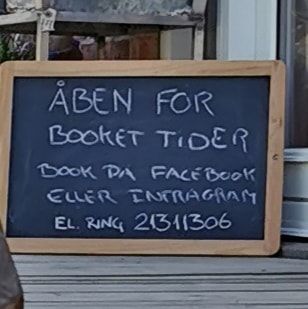 ÅBEN FOR
BOOKET TIDER
BOOK PÅ FACEBOOK
ELLER INTRAGRAM
EL. RING 21311306